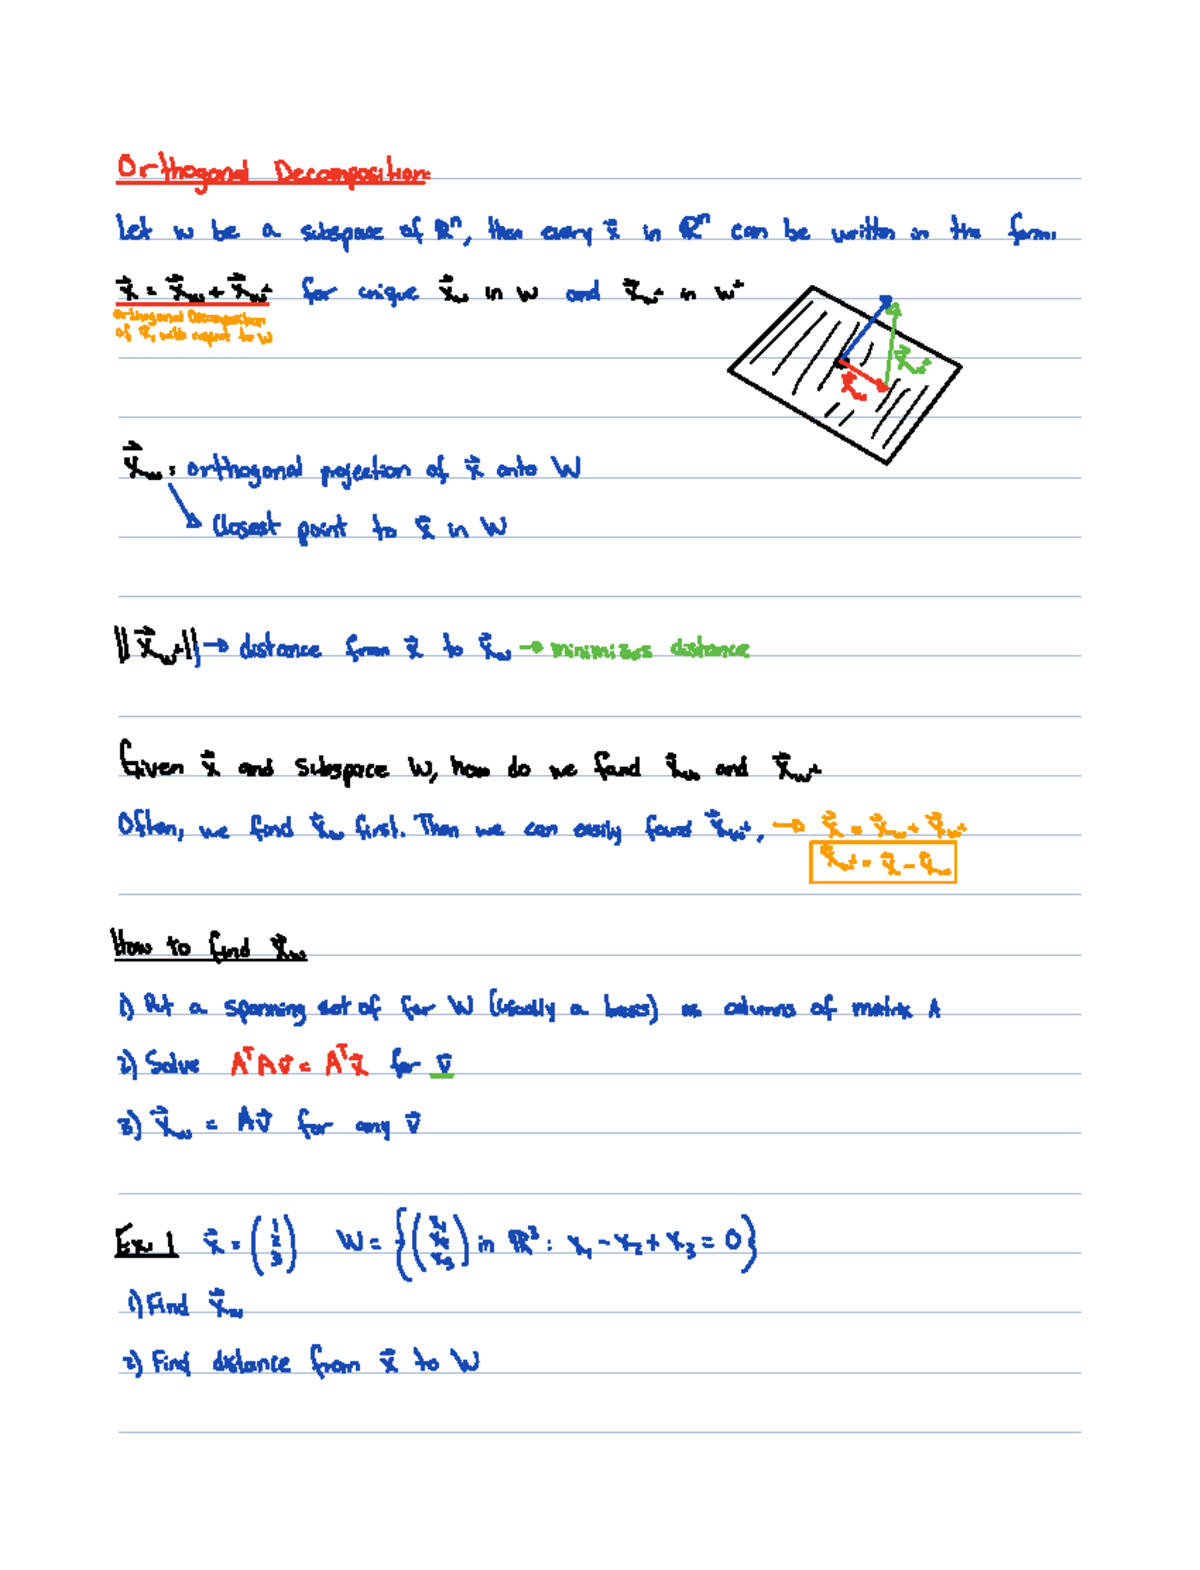 Orthogonal Decomposition:
Let W be a subspace of ℝⁿ, then every x⃗ in ℝⁿ can be written in the form:
x⃗ = x⃗_W + x⃗_W⊥ for unique x⃗_W in W and x⃗_W⊥ in W⊥
Orthogonal Decomposition
of x⃗, with respect to W
x⃗_W⊥
x⃗_W
x⃗_W: orthogonal projection of x⃗ onto W
→ Closest point to x⃗ in W
||x⃗_W⊥|| → distance from x⃗ to x⃗_W → minimizes distance
Given x⃗ and subspace W, how do we find x⃗_W and x⃗_W⊥
Often, we find x⃗_W first. Then we can easily found x⃗_W⊥, → x⃗ = x⃗_W + x⃗_W⊥
x⃗_W⊥ = x⃗ - x⃗_W
How to find x⃗_W
1) Put a spanning set of for W (usually a basis) as columns of matrix A
2) Solve AᵀAv⃗ = Aᵀx⃗ for v⃗
3) x⃗_W = Av⃗ for any v⃗
Ex. 1 x⃗ = (1 2 3) W = {(x₁ x₂ x₃) in ℝ³: x₁ - x₂ + x₃ = 0}
1) Find x⃗_W
2) Find distance from x⃗ to W